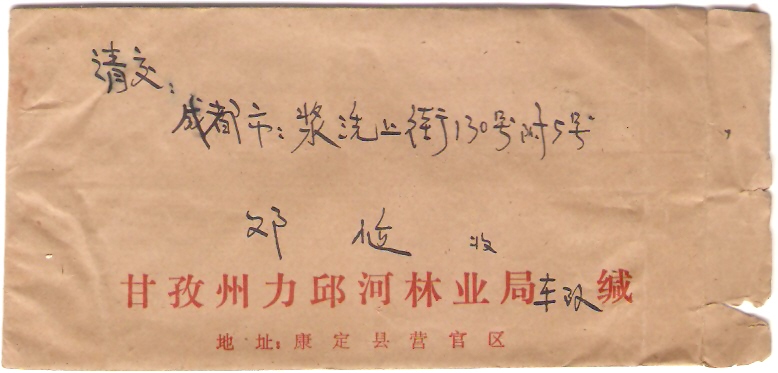 请交:
成都市:浆洗上街130号附5号
邓 收
甘孜州力邱河林业局车队缄
地址:康定县营官区